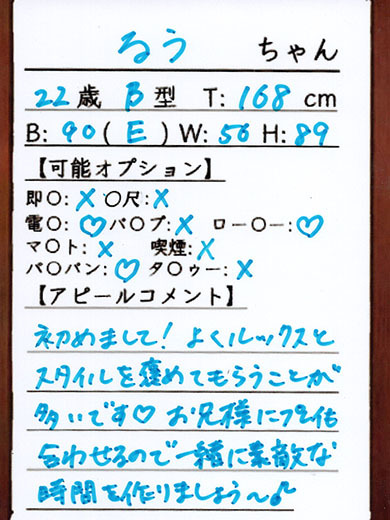 るう ちゃん
22歳 B型 T:168cm
B:90(E)W:56H:89
【可能オプション】
即〇:× 〇尺:×
電〇:♡バ〇ブ:× ロー〇ー:♡
マ〇ト:× 喫煙:×
パ〇パン:♡タ〇ゥー:×
【アピールコメント】
初めまして!よくルックスと
スタイルを褒めてもらうことが
多いです♡ お兄様に
合わせるので一緒に素敵な
時間を作りましょう〜♪